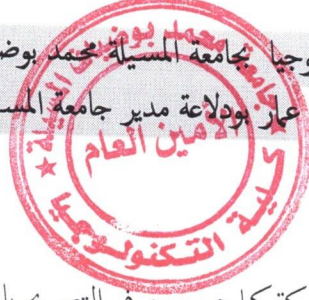 وجيا بجامعة المسيلة محمد بوض
عمار بودلاعة مدير جامعة المس
جامعة محمد بوضياف المسيلة
الأمين العام
كلية التكنولوجيا